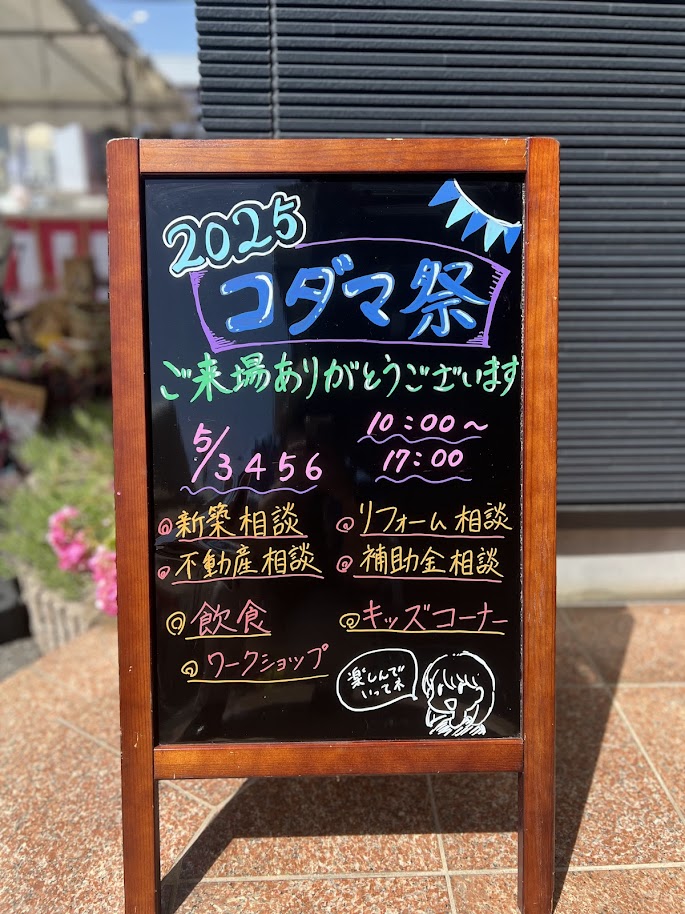 2025
コダマ祭
ご来場ありがとうございます
5/3 4 5 6
10:00～
17:00
◎新築相談
◎リフォーム相談
◎不動産相談
◎補助金相談
◎飲食
◎キッズコーナー
◎ワークショップ
楽しんで
いってネ